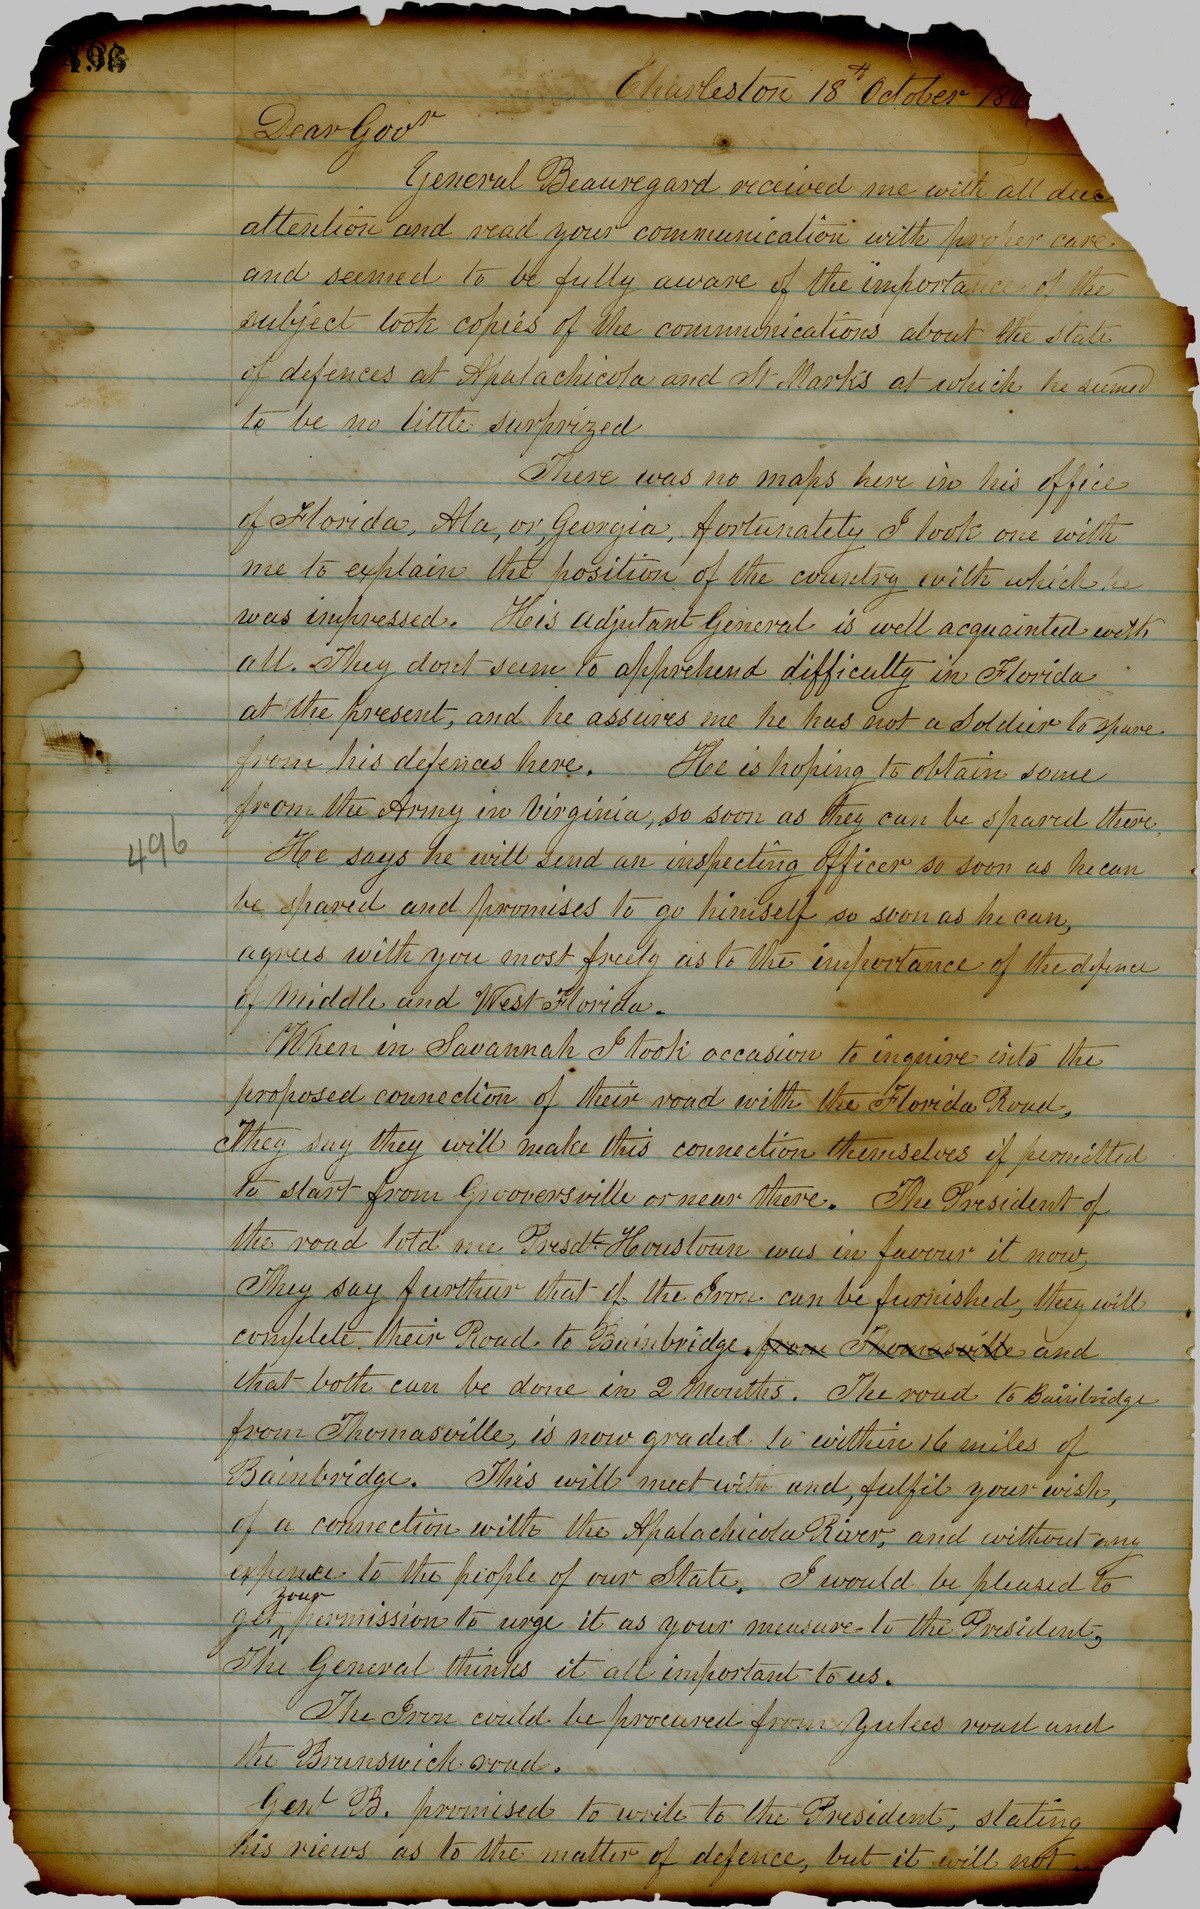 496
Charleston 18th October 186
Dear Govr
General Beauregard received me with all due
attention and read your communication with proper care
and seemed to be fully aware of the importance of the
subject took copies of the communications about the state
of defences at Apalachicola and St Marks at which he seemed
to be no little surprized
There was no maps here in his office
of Florida, Ala, or, Georgia, fortunately I took one with
me to explain the position of the country with which he
was impressed. His adjutant General is well acquainted with
all. They dont seem to apprehend difficulty in Florida
at the present, and he assures me he has not a Soldier to spare
from his defences here. He is hoping to obtain some
from the Army in Virginia, so soon as they can be spared there,
496
He says he will send an inspecting officer so soon as he can
be spared and promises to go himself so soon as he can,
agrees with you most freely as to the importance of the defence
of Middle and West Florida.
When in Savannah I took occasion to inquire into the
proposed connection of their road with the Florida Road,
They say they will make this connection themselves if permitted
to start from Grooversville or near there. The President of
the road told me Presdt Houstoun was in favour it now,
They say further that if the Iron can be furnished, they will
complete their Road to Bainbridge. from Thomasville and
that both can be done in 2 Months. The road to Bainbridge
from Thomasville, is now graded to within 16 miles of
Bainbridge. This will meet with and, fulfil your wish,
of a connection with the Apalachicola River, and without any
expense to the people of our State. I would be pleased to
get your permission to urge it as your measure to the President,
The General thinks it all important to us.
The Iron could be procured from Yulees road and
the Brunswick road.
Genl B. promised to write to the President, stating
his views as to the matter of defence, but it will not